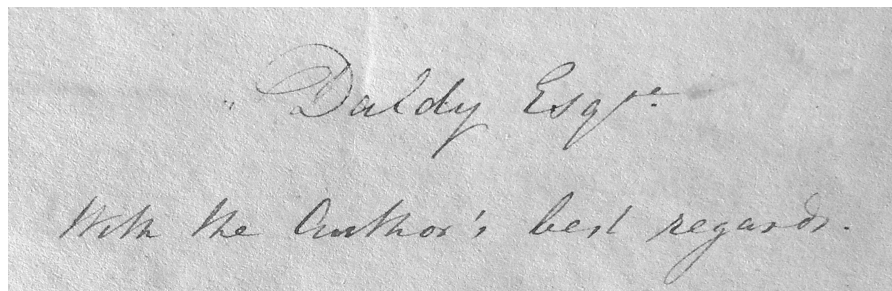 " Daldy Esqre.
With the Author's best regards.